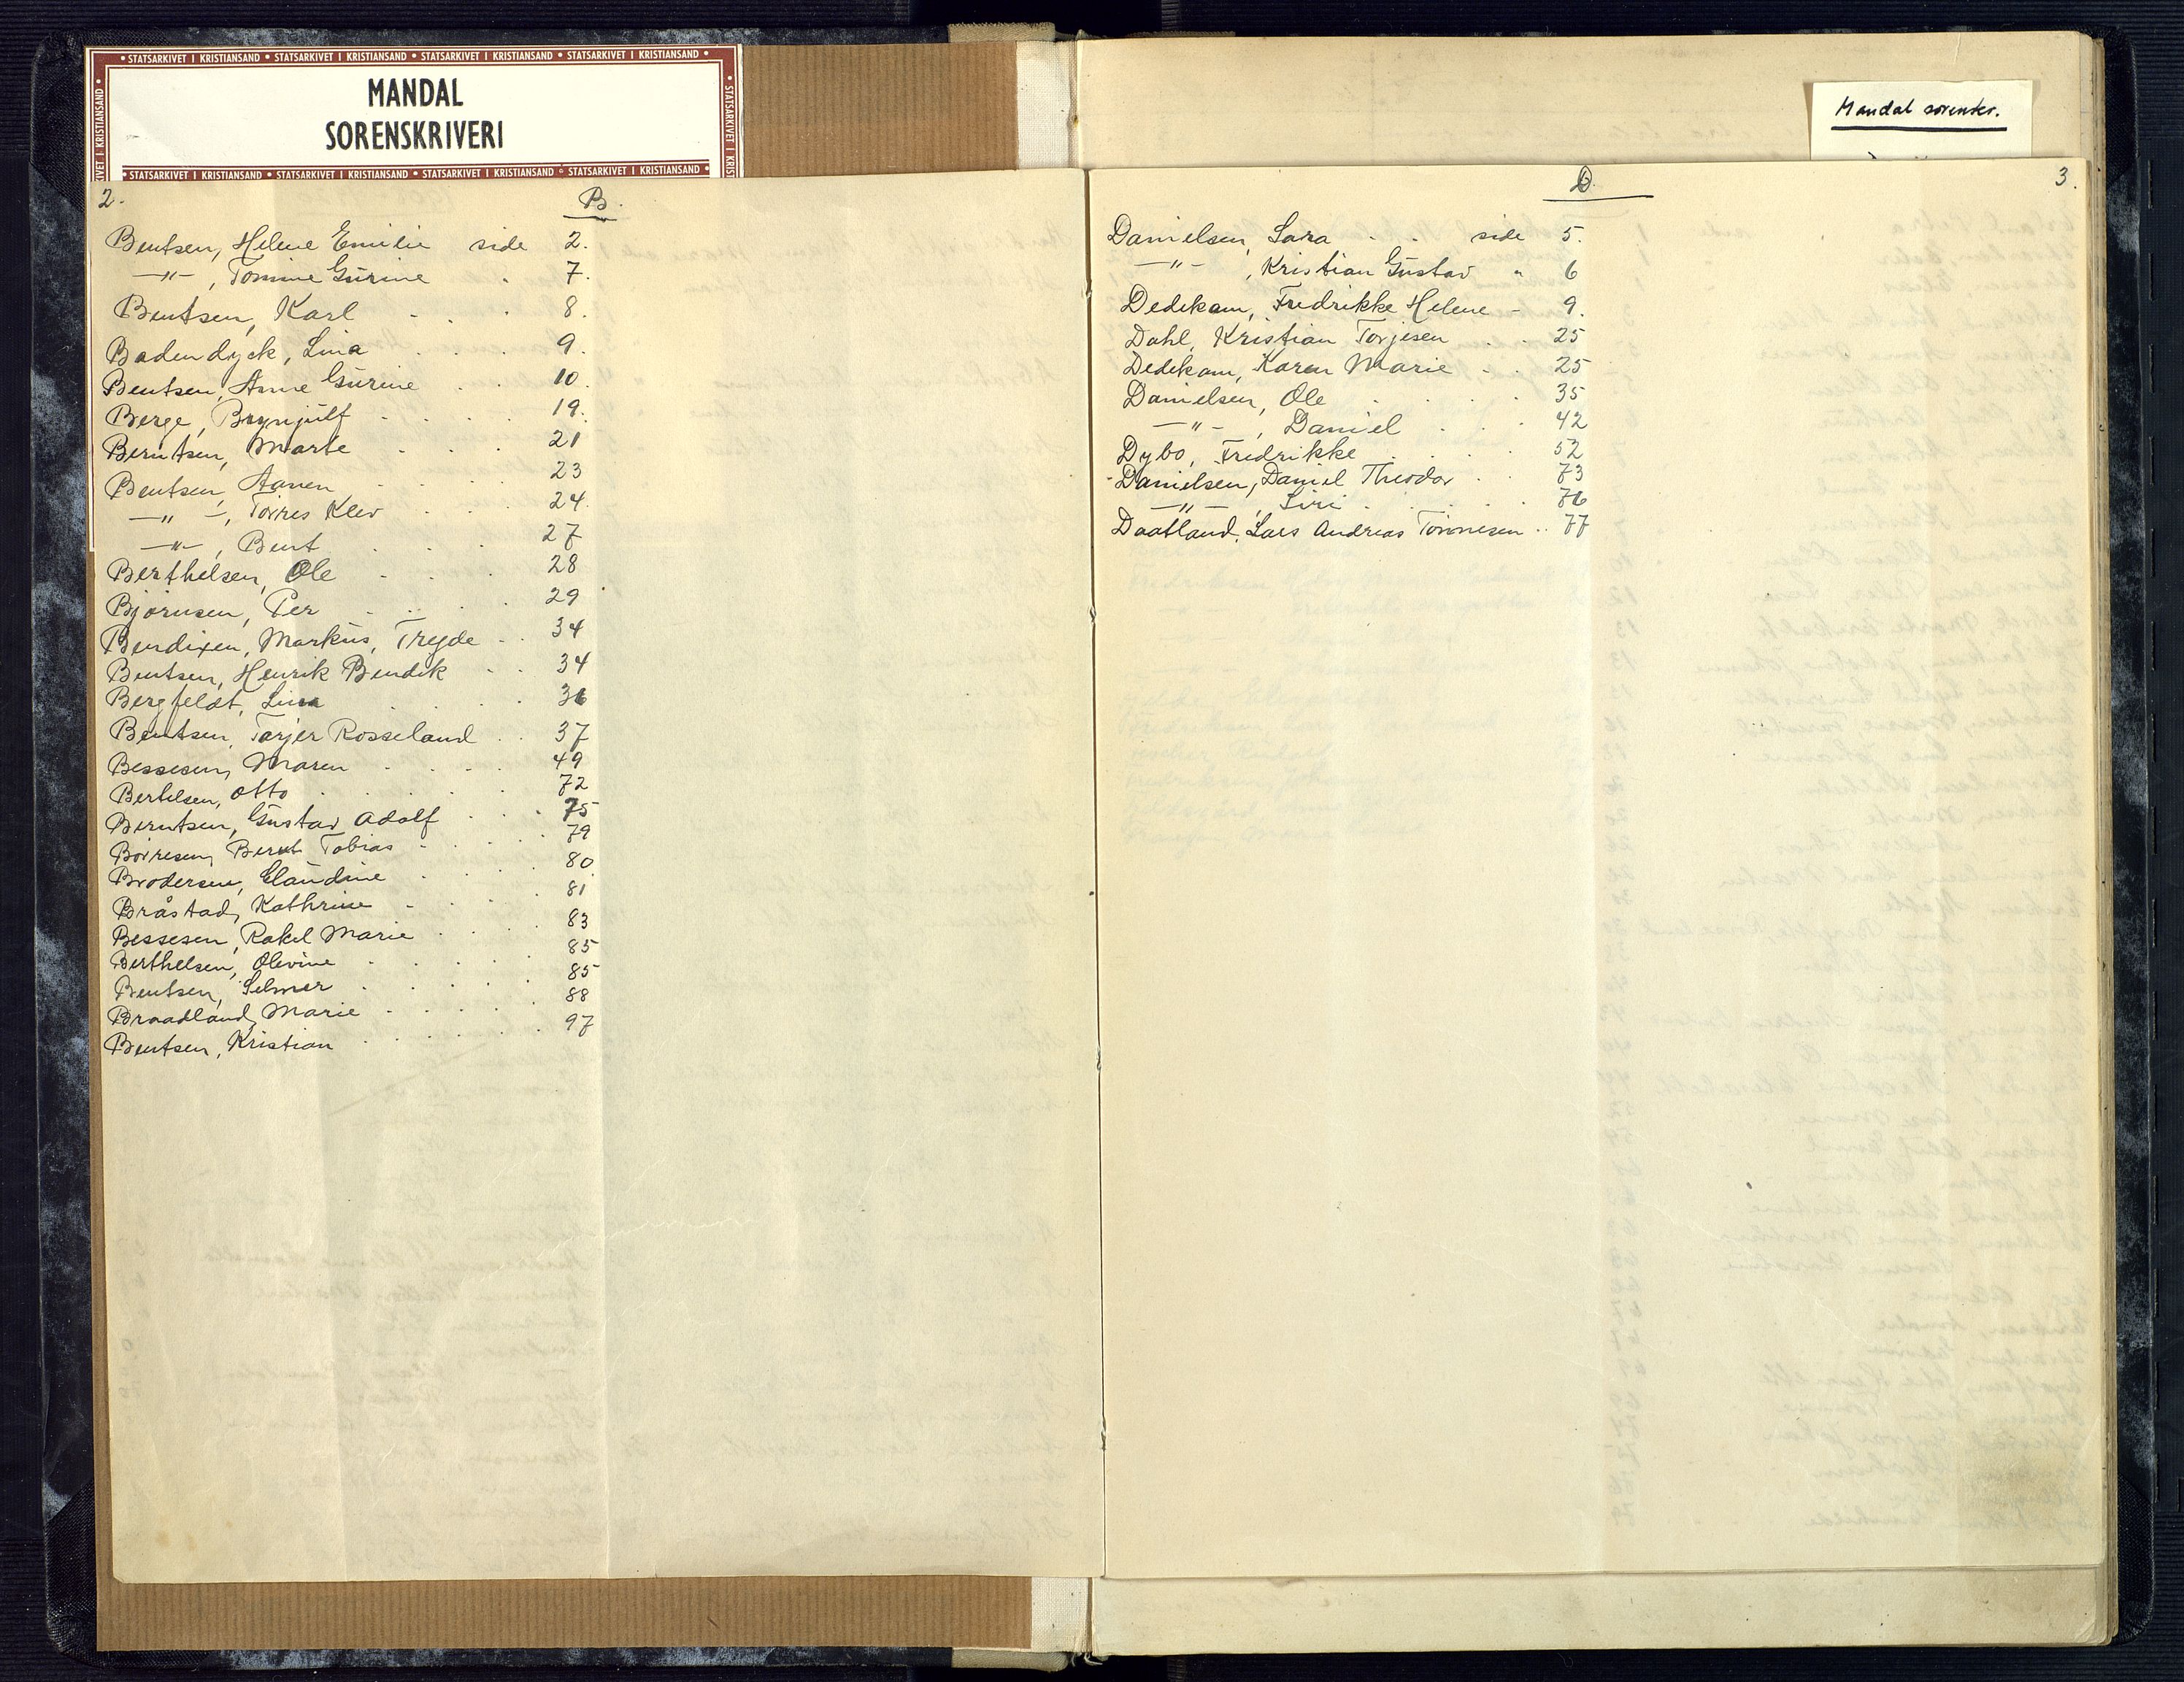 • STATSARKIVET I KRISTIANSAND • STATSARKIVET I KRISTIANSAND • STATSARKIVET I KRISTIANSAND • STATSARKIVET I KRISTIANSAND •
MANDAL
SORENSKRIVERI
• STATSARKIVET I KRISTIANSAND • STATSARKIVET I KRISTIANSAND • STATSARKIVET I KRISTIANSAND • STATSARKIVET I KRISTIANSAND •
2.
B.
Bentsen, Helene Emilie side 2.
—"—, Tomine Gurine . 7.
Bentsen, Karl . . . 8.
Badendyck, Lina . . . 9.
Bentsen, Anne Gurine . . 10.
Berge, Brynjulf . . . . 19.
Berntsen, Marte . . . 21
Bentsen, Aanen . . . 23
—"—, Torres Klev . . . 24.
—"—, Bent . . . 27
Berthelsen, Ole . . . 28
Bjørnsen, Per . . . . 29
Bendixen, Markus, Tregde . . 34
Bentsen, Henrik Bendik . . 34
Bergfeldt, Lina . . . 36
Bentsen, Tarjer Rosseland . . 37
Bessesen, Maren . . . . 49
Bertelsen, Otto . . . . 72
Berntsen, Gustav Adolf . . . 75
Børresen, Bernt Tobias . . . . 79
Brodersen, Claudine . . . . 80
Bråstad, Kathrine . . . . 81
Bessesen, Rakel Marie . . . . 83
Berthelsen, Olevine . . . . . 85
Bentsen, Selmer . . . . . 85
Braadland, Marie . . . . 88
Bentsen, Kristian . . . . . 97
Mandal sorenskr.
D.
3.
Danielsen, Sara . . side 5.
—"—, Kristian Gustav " 6
Dedekam, Fredrikke Helene - 9.
Dahl, Kristian Torjesen . . 25
Dedekam, Karen Marie . . 25
Danielsen, Ole . . . . 35
—"—, Daniel . . . 42
Dybo, Fredrikke . . . . 52
Danielsen, Daniel Theodor . . 73
—"—, Siri . . . . . 76
Daatland, Lars Andreas Tønnesen . . 77